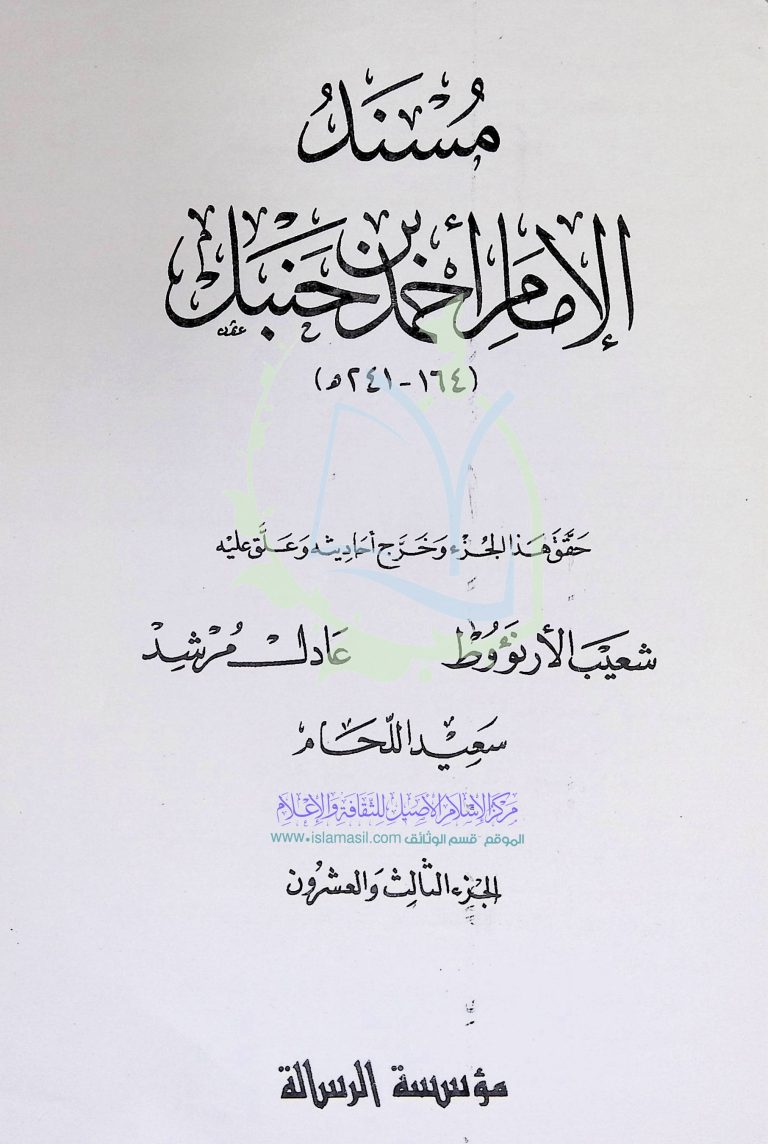 مُسْنَدُ
الإمَامِ أَحْمَد بن حَنبَل
(١٦٤ - ٢٤١ ه)
حَقَّقَ هَذا الجُزْء وَخَرَّج أحَاديثه وَعَلَّق عليْه
شعَيبْ الأرنؤوُط عَادل مُرْشِدْ
سَعيْد اللّحَام
مركز الإسلام الأصيل للثقافة والإعلام
الموقع - قسم الوثائق www.islamasil.com
الجزء الثالث والعشرون
مؤسسة الرسالة